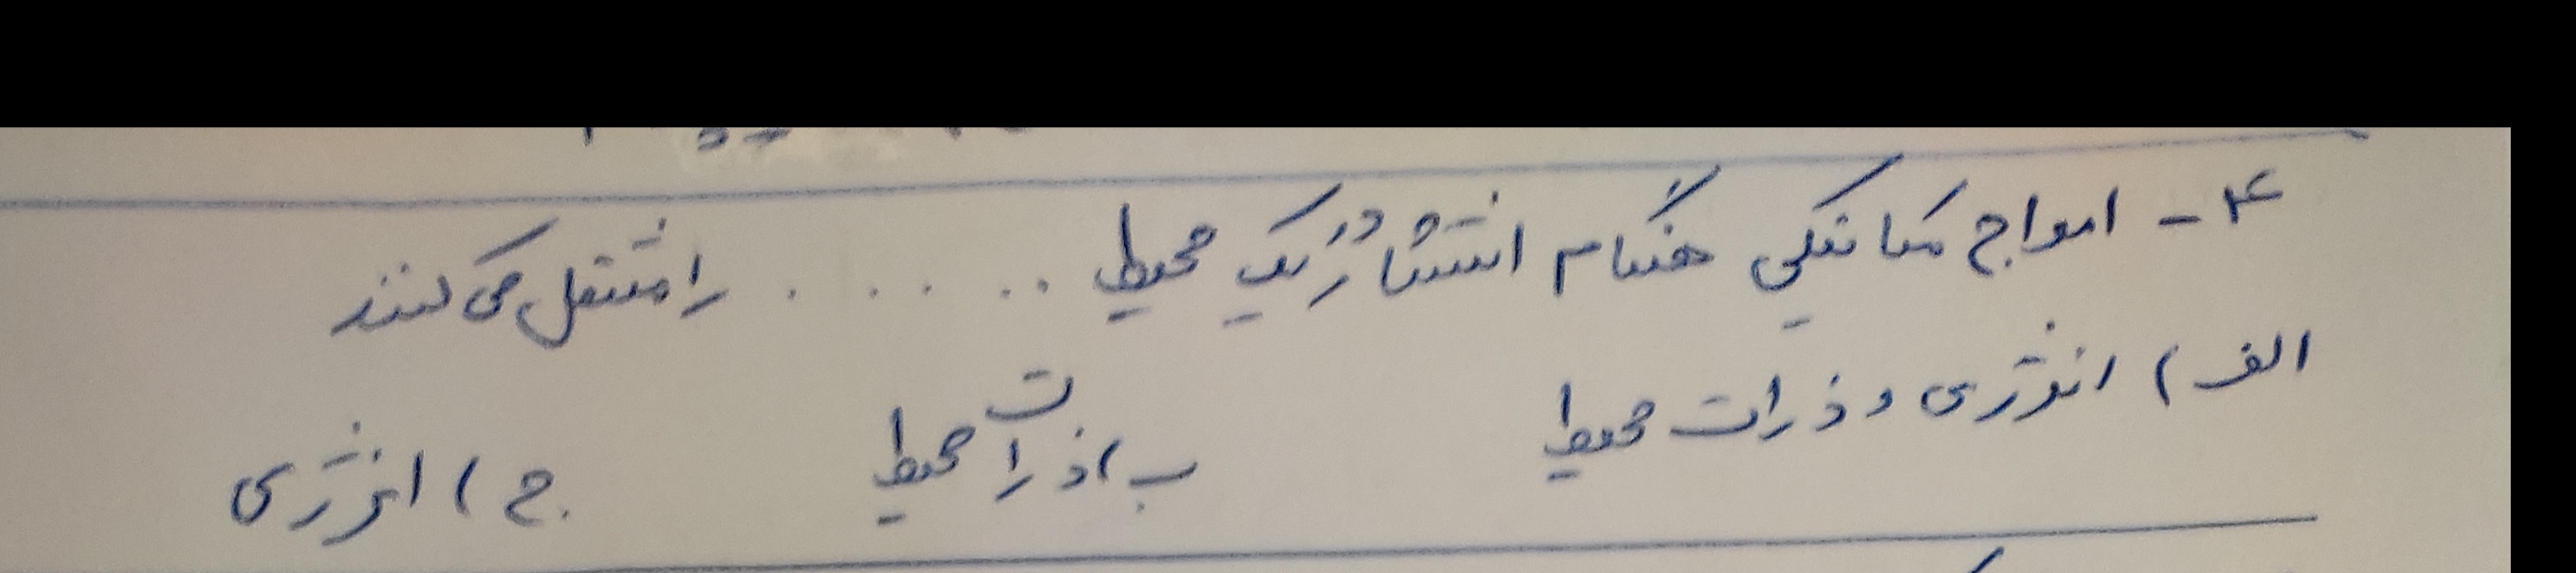 ۴- امواج مکانیکی هنگام انتشار در یک محیط ..... را منتقل می کنند
الف) انرژی و ذرات محیط ب) ذرات محیط ج) انرژی